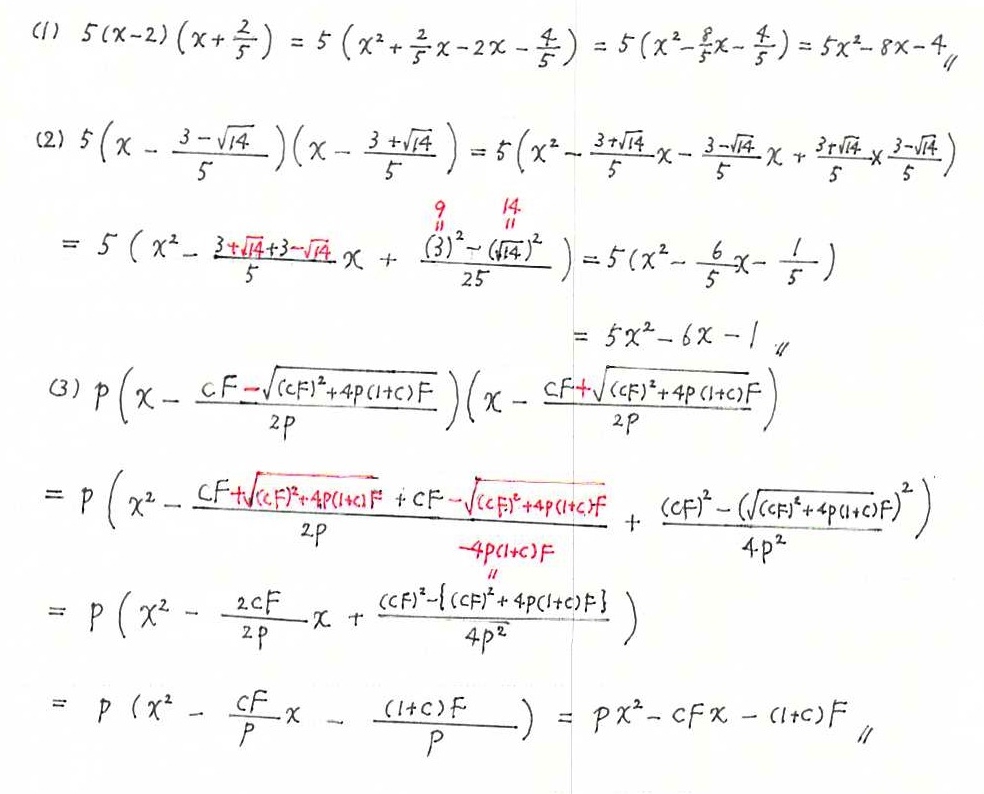 (1) 5(x-2)(x+2/5) = 5(x²+2/5x-2x-4/5) = 5(x²-8/5x-4/5) = 5x²-8x-4〃
(2) 5(x - (3-√14)/5)(x - (3+√14)/5) = 5(x² - (3+√14)/5 x - (3-√14)/5 x + (3+√14)/5 × (3-√14)/5)
9 14
〃 〃
= 5(x² - (3+√14+3-√14)/5 x + ((3)²-(√14)²)/25) = 5(x² - 6/5x - 1/5)
= 5x²-6x-1〃
(3) p(x - (cF-√((cF)²+4p(1+c)F))/2p)(x - (cF+√((cF)²+4p(1+c)F))/2p)
= p(x² - (cF+√((cF)²+4p(1+c)F)+cF-√((cF)²+4p(1+c)F))/2p + ((cF)²-(√((cF)²+4p(1+c)F))²)/4p²)
-4p(1+c)F
〃
= p(x² - 2cF/2p x + ((cF)²-{(cF)²+4p(1+c)F})/4p²)
= p(x² - cF/p x - (1+c)F/p) = px²-cFx-(1+c)F〃